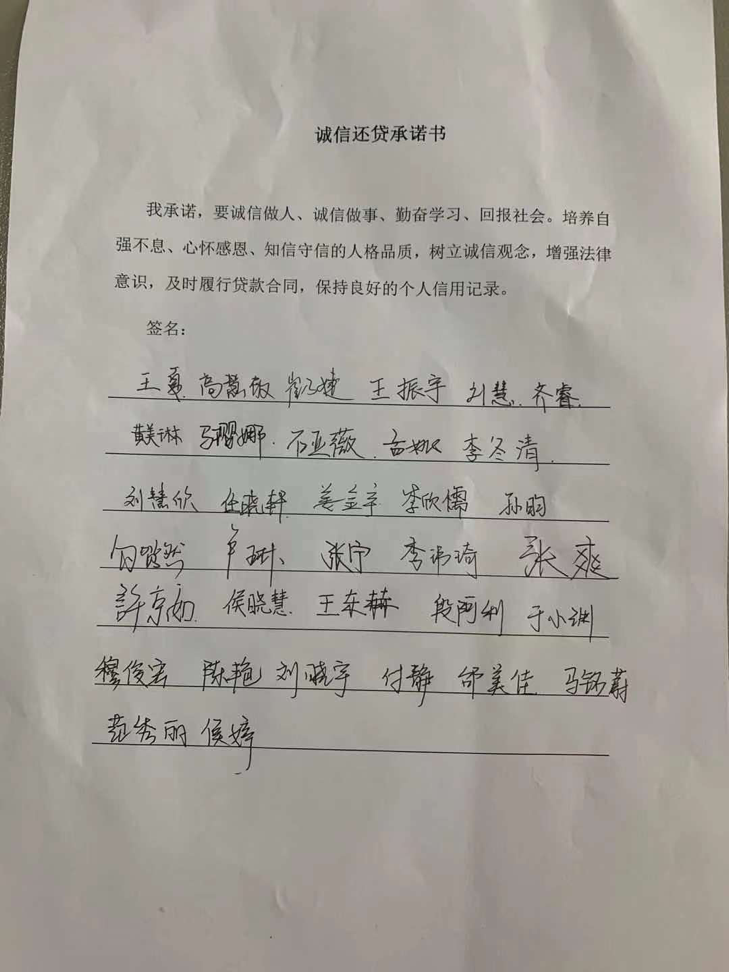 诚信还贷承诺书
我承诺，要诚信做人、诚信做事、勤奋学习、回报社会。培养自
强不息、心怀感恩、知信守信的人格品质，树立诚信观念，增强法律
意识，及时履行贷款合同，保持良好的个人信用记录。
签名：
王夏 高 敏 王振宇 刘慧 齐睿
黄美琳 马 娜 石亚薇 李冬清
刘慧欣 任晓轩 姜金宇 李欣儒 孙昀
然 卢琳 张宁 李沛琦 张爽
許京 侯晓慧 王东赫 段 利 于小渊
穆俊宏 陈艳 刘晓宇 付静 邰美佳 马铭蔚
范秀丽 侯婷